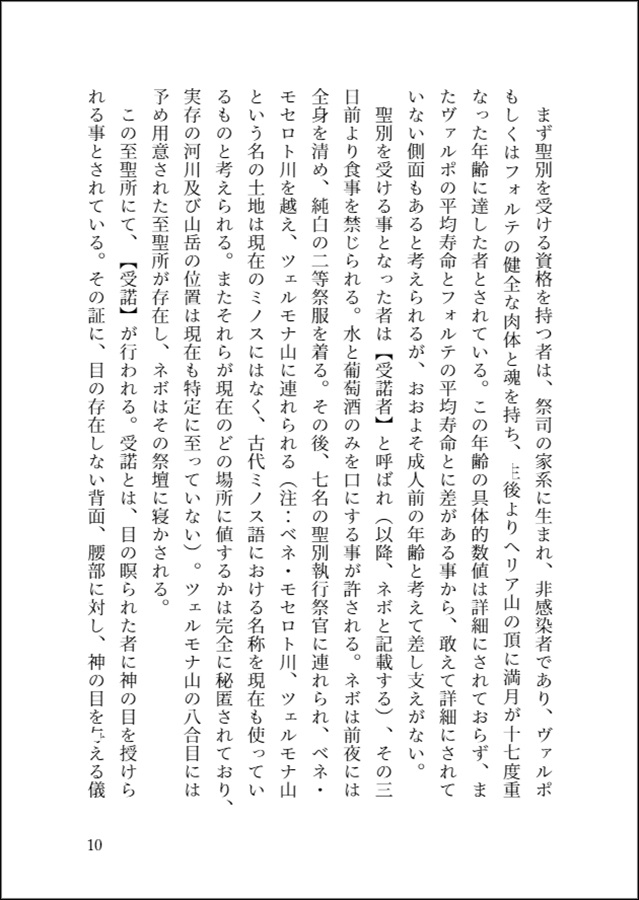 まず聖別を受ける資格を持つ者は、祭司の家系に生まれ、非感染者であり、ヴァルポ
もしくはフォルテの健全な肉体と魂を持ち、生後よりヘリア山の頂に満月が十七度重
なった年齢に達した者とされている。この年齢の具体的数値は詳細にされておらず、ま
たヴァルポの平均寿命とフォルテの平均寿命とに差がある事から、敢えて詳細にされて
いない側面もあると考えられるが、おおよそ成人前の年齢と考えて差し支えがない。
聖別を受ける事となった者は【受諾者】と呼ばれ（以降、ネボと記載する）、その三
日前より食事を禁じられる。水と葡萄酒のみを口にする事が許される。ネボは前夜には
全身を清め、純白の二等祭服を着る。その後、七名の聖別執行祭官に連れられ、ベネ・
モセロト川を越え、ツェルモナ山に連れられる（注：ベネ・モセロト川、ツェルモナ山
という名の土地は現在のミノスにはなく、古代ミノス語における名称を現在も使ってい
るものと考えられる。またそれらが現在のどの場所に値するかは完全に秘匿されており、
実存の河川及び山岳の位置は現在も特定に至っていない）。ツェルモナ山の八合目には
予め用意された至聖所が存在し、ネボはその祭壇に寝かされる。
この至聖所にて、【受諾】が行われる。受諾とは、目の瞑られた者に神の目を授けら
れる事とされている。その証に、目の存在しない背面、腰部に対し、神の目を与える儀
10